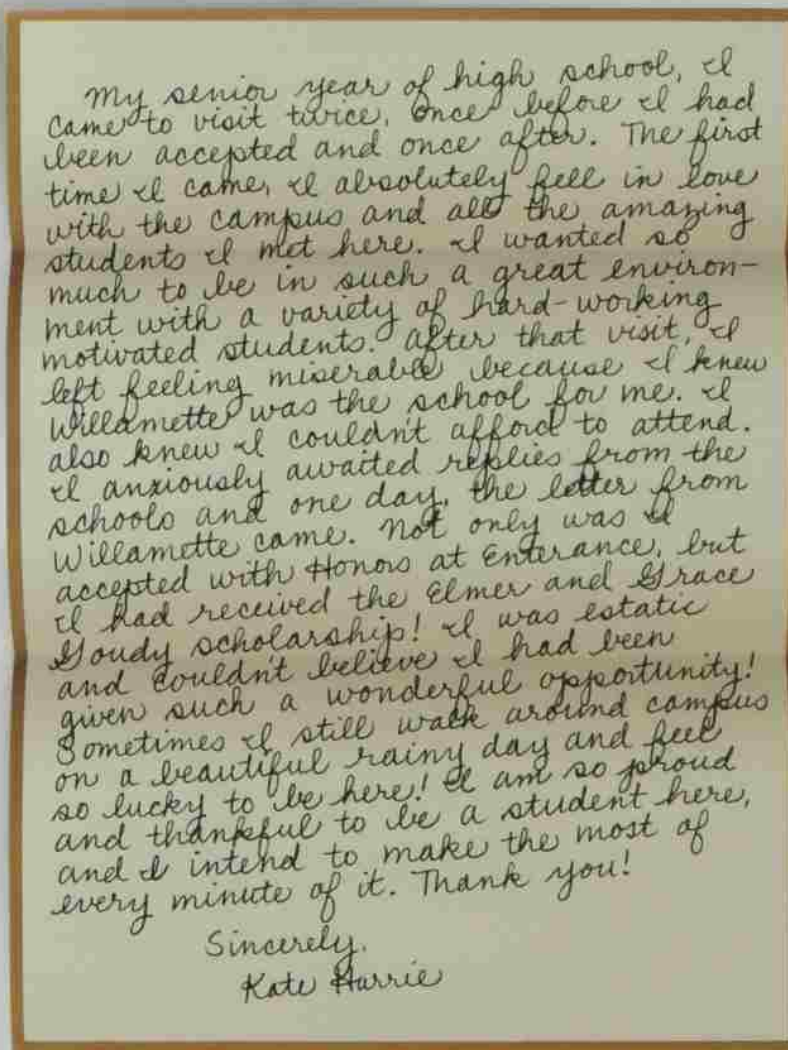 My senior year of high school, I
came to visit twice, once before I had
been accepted and once after. The first
time I came, I absolutely fell in love
with the campus and all the amazing
students I met here. I wanted so
much to be in such a great environ-
ment with a variety of hard-working
motivated students. After that visit, I
left feeling miserable because I knew
Willamette was the school for me. I
also knew I couldn't afford to attend.
I anxiously awaited replies from the
schools and one day, the letter from
Willamette came. Not only was I
accepted with Honors at Enterance, but
I had received the Elmer and Grace
Goudy scholarship! I was estatic
and couldn't believe I had been
given such a wonderful opportunity!
Sometimes I still walk around campus
on a beautiful rainy day and feel
so lucky to be here! I am so proud
and thankful to be a student here,
and I intend to make the most of
every minute of it. Thank you!
Sincerely,
Kate Harrie